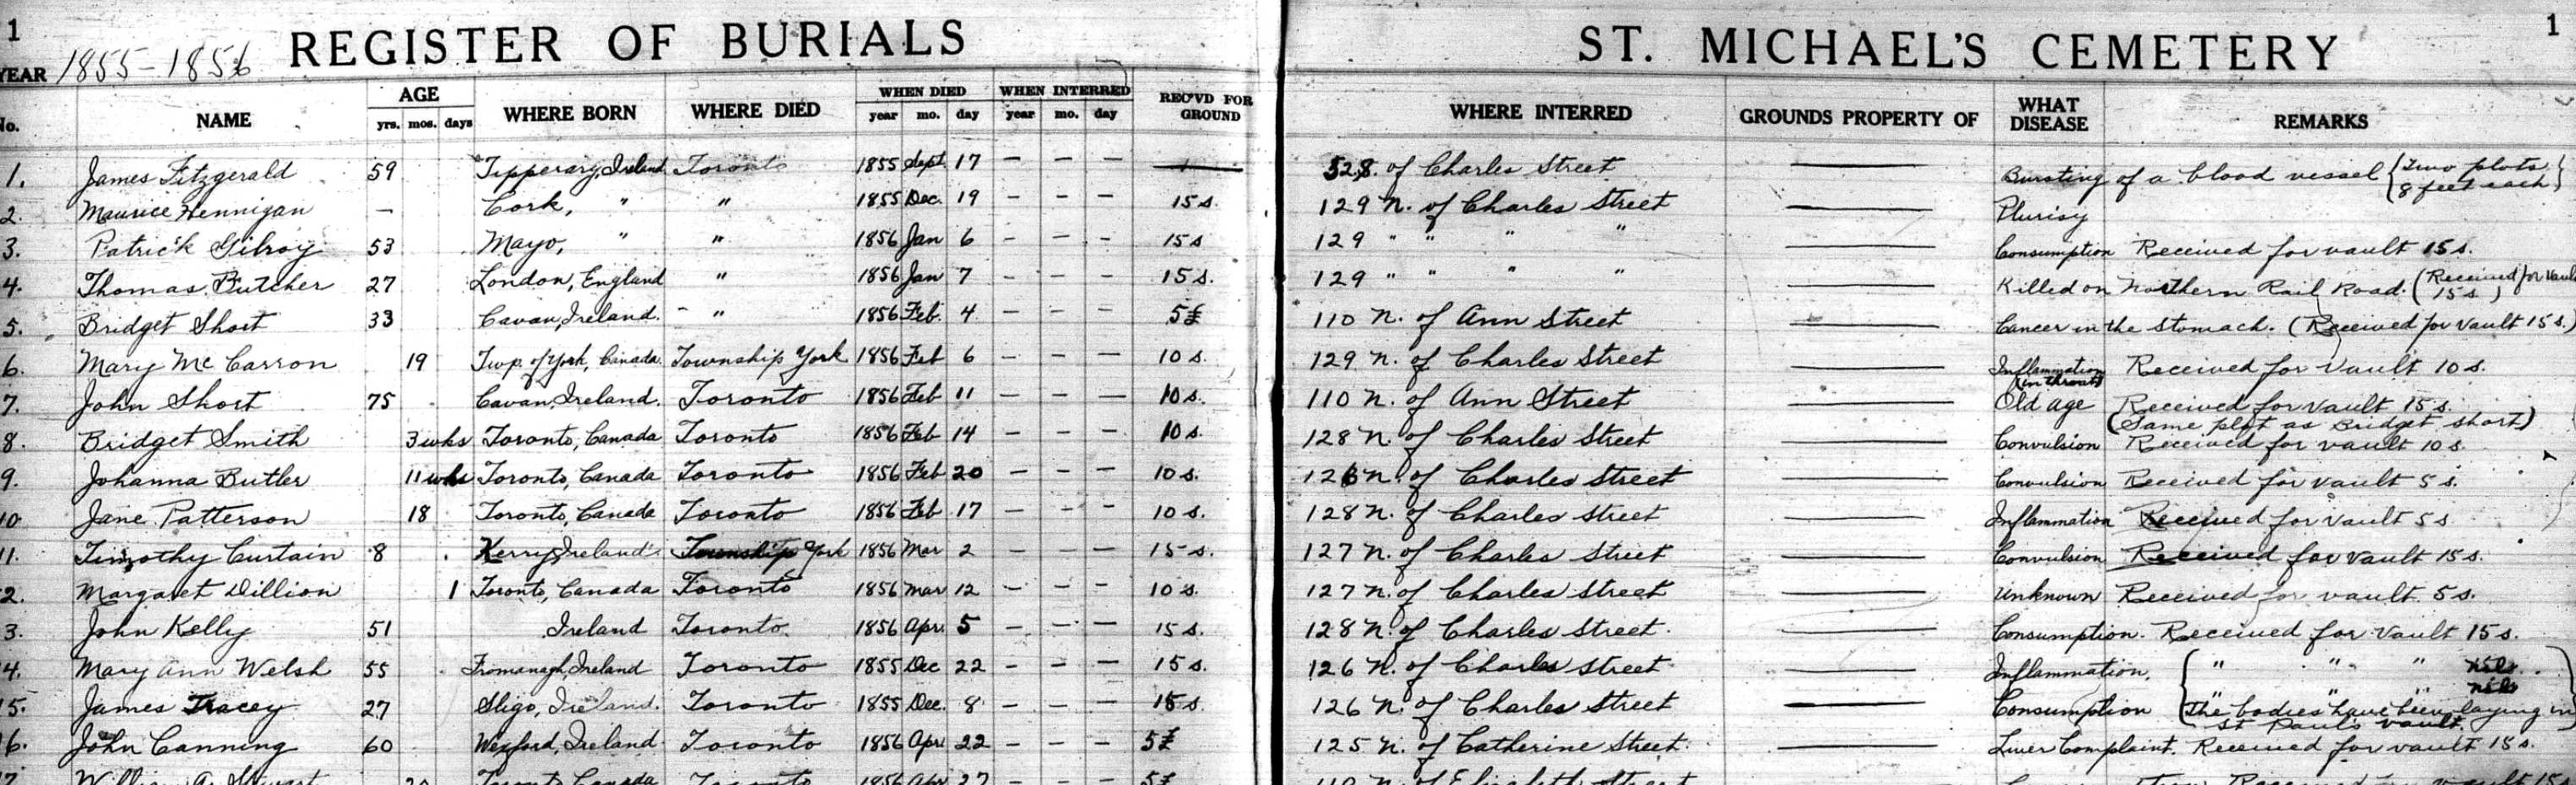 1 REGISTER OF BURIALS ST. MICHAEL'S CEMETERY 1
YEAR 1855-1856
No. NAME AGE yrs. mos. days WHERE BORN WHERE DIED WHEN DIED year mo. day WHEN INTERRED year mo. day REC'VD FOR GROUND WHERE INTERRED GROUNDS PROPERTY OF WHAT DISEASE REMARKS
1. James Fitzgerald 59 Tipperary, Ireland Toronto 1855 Sept. 17 — — — — of Charles Street — Bursting of a blood vessel {Two plots 8 feet each}
2. Maurice Hennigan — Cork, " " 1855 Dec. 19 — — — 15 s. 129 N. of Charles Street — Plurisy
3. Patrick Gilroy 53 Mayo, " " 1856 Jan 6 — — — 15 s 129 " " " " — Consumption Received for vault 15 s.
4. Thomas Butcher 27 London, England " 1856 Jan 7 — — — 15 s. 129 " " " " — Killed on Northern Rail Road. (Received for Vault 15 s)
5. Bridget Short 33 Cavan, Ireland. " 1856 Feb. 4 — — — 5£ 110 N. of Ann Street — Cancer in the stomach. (Received for Vault 15 s.)
6. Mary McCarron 19 Twp. of York, Canada. Township York 1856 Feb 6 — — — 10 s. 129 N. of Charles Street — Inflammation (in throat) Received for Vault 10 s.
7. John Short 75 Cavan, Ireland. Toronto 1856 Feb 11 — — — 10 s. 110 N. of Ann Street — Old age Received for vault 15 s. (Same plot as Bridget Short)
8. Bridget Smith 3 wks Toronto, Canada Toronto 1856 Feb 14 — — — 10 s. 128 N. of Charles Street — Convulsion Received for vault 10 s.
9. Johanna Butler 11 wks Toronto, Canada Toronto 1856 Feb 20 — — — 10 s. N. of Charles Street — Convulsion Received for vault 5 s.
10. Jane Patterson 18 Toronto, Canada Toronto 1856 Feb 17 — — — 10 s. 128 N. of Charles Street — Inflammation Received for vault 5 s
11. Timothy Curtain 8 Kerry, Ireland Township York 1856 Mar 2 — — — 15 s. 127 N. of Charles Street — Convulsion Received for vault 15 s.
2. Margaret Dillion 1 Toronto, Canada Toronto 1856 Mar 12 — — — 10 s. 127 N. of Charles Street — Unknown Received for vault 5 s.
3. John Kelly 51 Ireland Toronto. 1856 Apr. 5 — — — 15 s. 128 N. of Charles Street. — Consumption. Received for vault 15 s.
4. Mary Ann Welsh 55 Fromanagh, Ireland Toronto 1855 Dec 22 — — — 15 s. 126 N. of Charles Street — Inflammation. " " "
5. James Tracey 27 Sligo, Ireland. Toronto 1855 Dec. 8 — — — 15 s. 126 N. of Charles Street — Consumption (The bodies have been laying in St Paul's vault.
6. John Canning 60 Wexford, Ireland. Toronto 1856 Apr. 22 — — — 5£ 125 N. of Catherine Street. — Liver Complaint. Received for vault 15 s.
7. William Toronto, Canada Toronto 1856 Apr 27 5£ N. of Elizabeth Street Received vault 15 s